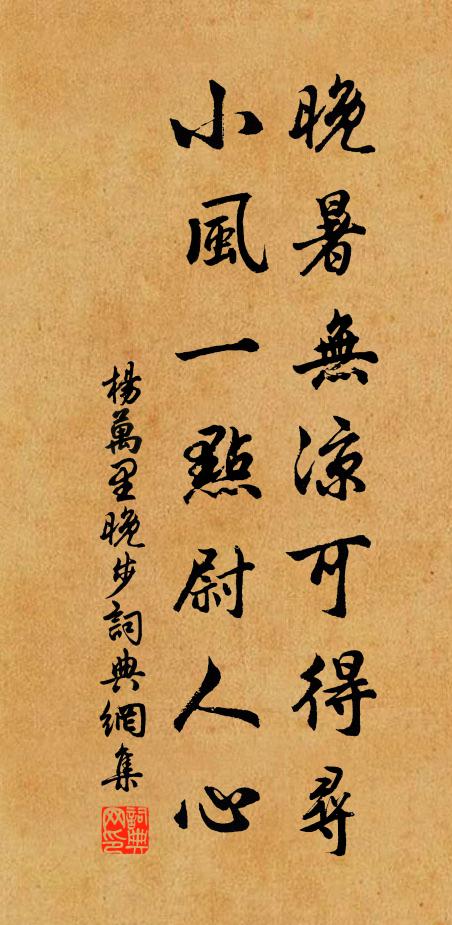 晚暑無涼可得尋
小風一點尉人心
楊萬里晚步詞典網集
詞典网印